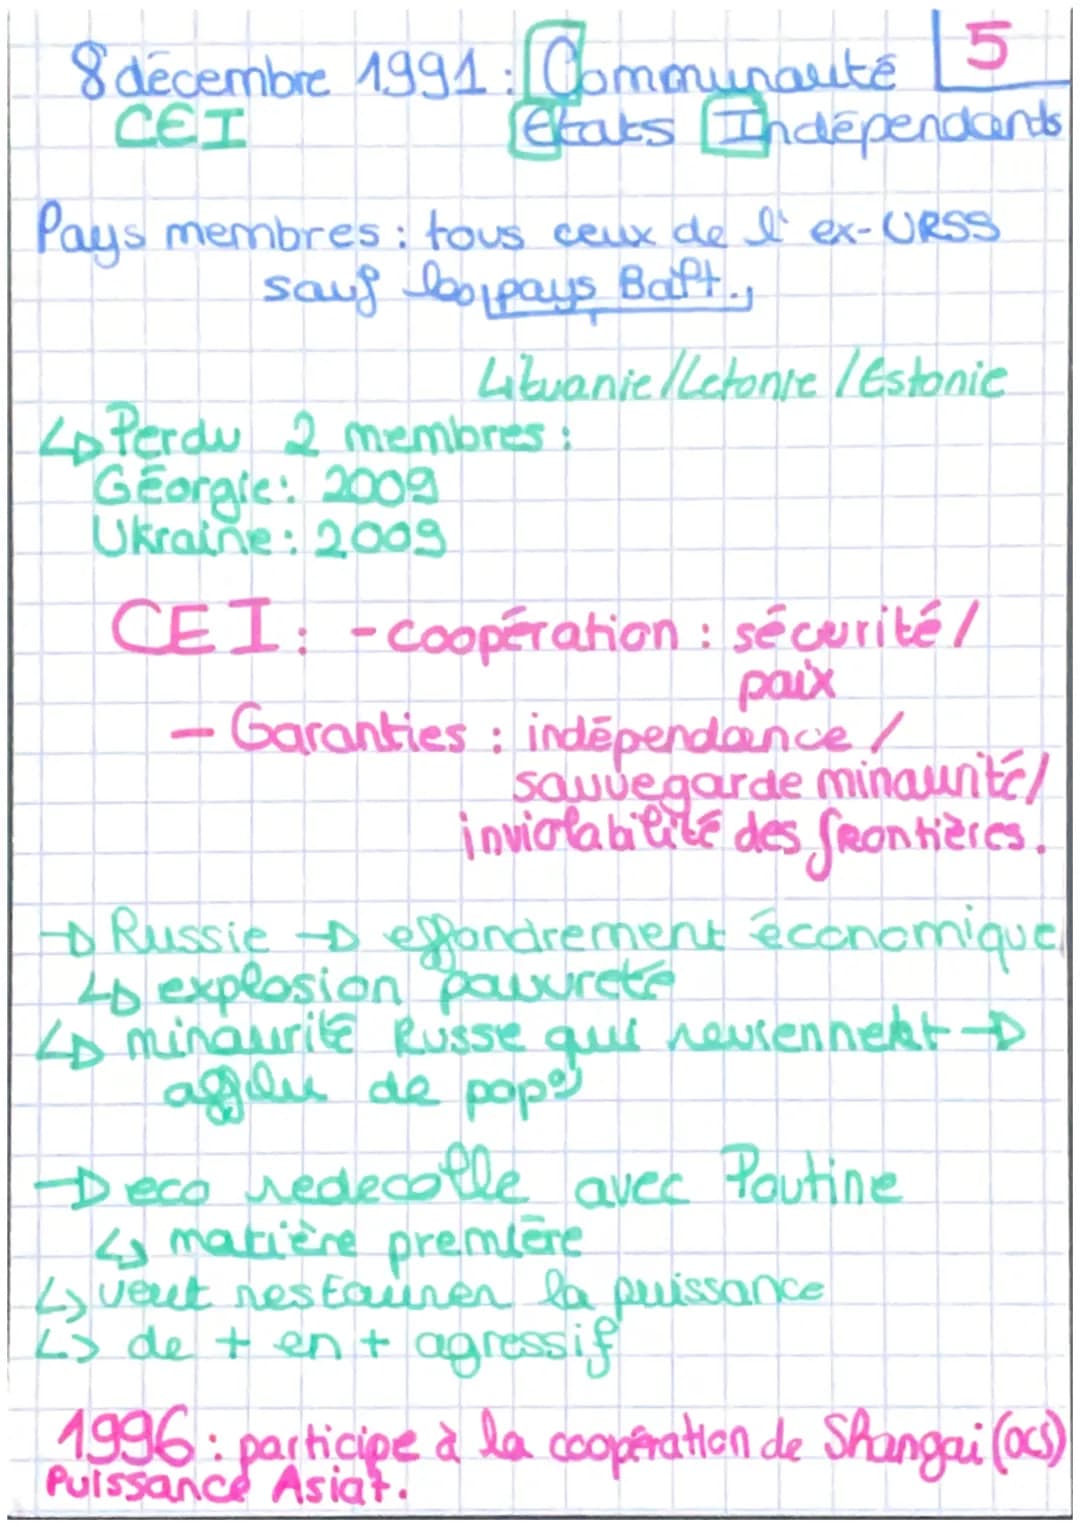 5
8 décembre 1991 : Communauté
CEI Etats Indépendants
Pays membres : tous ceux de l' ex-URSS
sauf les pays Balt.
Lituanie / Letonie / Estonie
↳ Perdu 2 membres :
Géorgie : 2009
Ukraine : 2009
CEI : - coopération : sécurité /
paix
- Garanties : indépendance /
sauvegarde minaurité /
inviolabilité des frontières.
→ Russie → effondrement économique
↳ explosion pauvreté
↳ minaurité Russe qui reviennent →
afflu de pop°
→ eco redecolle avec Poutine
↳ matière première
↳ veut restaurer la puissance
↳ de + en + agressif
1996 : participe à la coopération de Shangai (OCS)
Puissance Asiat.